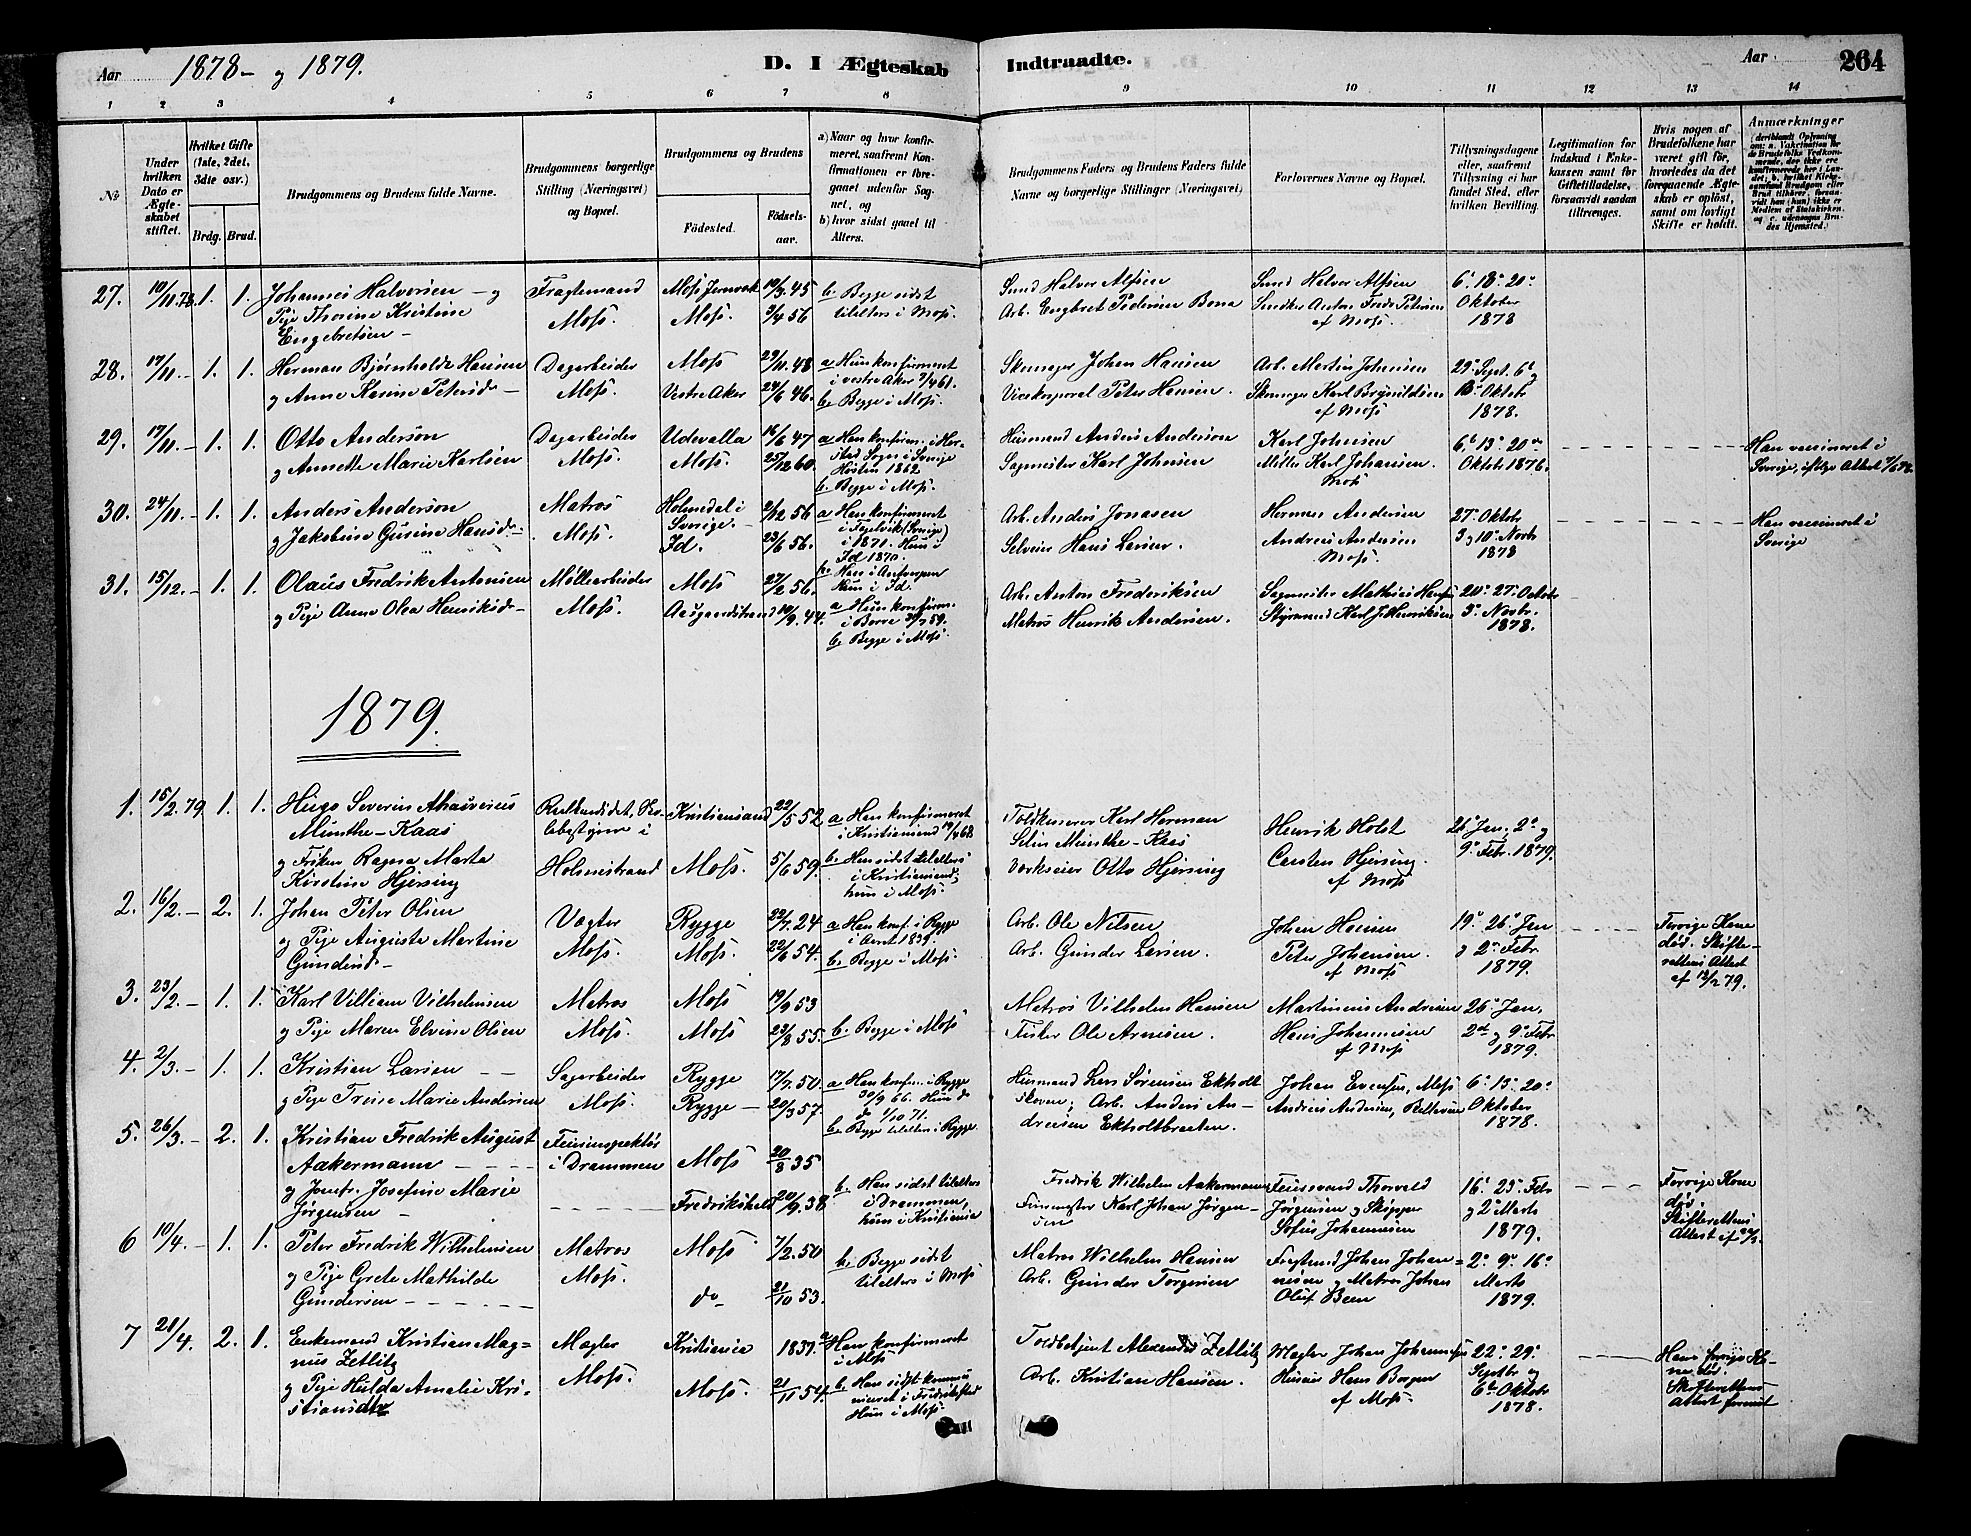 Aar 1878 - og 1879.
D. I Ægteskab Indtraadte.
Aar 264
1 2 3 4 5 6 7 8 9 10 11 12 13 14
No
Under hvilken Dato er Ægteskabet stiftet.
Hvilket Gifte (1ste, 2det, 3die osv.)
Brdg. Brud.
Brudgommens og Brudens fulde Navne.
Brudgommens borgerlige Stilling (Næringsvei) og Bopæl.
Brudgommens og Brudens
Fødested. Fødselsaar.
a) Naar og hvor konfirmeret, saafremt Konfirmationen er foregaaet udenfor Sognet, og
b) hvor sidst gaaet til Alters.
Brudgommens Faders og Brudens Faders fulde Navne og borgerlige Stillinger (Næringsvei)
Forlovernes Navne og Bopæl.
Tillysningsdagene eller, saafremt Tillysning ei har fundet Sted, efter hvilken Bevilling.
Legitimation for Indskud i Enkekassen samt for Giftetilladelse, forsaavidt saadan tiltrænges.
Hvis nogen af Brudefolkene har været gift før, hvorledes da det foregaaende Ægteskab er opløst, samt om lovligt Skifte er holdt.
Anmærkninger
27. 10/11.78 1. 1. Johannes Halvorsen - og Pige Thorine Kristine Engebretsen -
Fragtemand Moss.
Moss Jernverk 19/3.45
Moss. 9/4 56
b. Begge sidst tilalters i Moss.
Sund Halvor Alfsen
Arb. Engbret Pedersen Bona
Sund Halvor Alfsen
af Moss.
6. 13. 20. Oktober 1878
28. 17/11 - 1. 1. Herman Bjørnholdt Hansen og Anne Karine Petersd. -
Dagarbeider Moss.
Moss 29/11.48
Vestre Aker 24/6 46.
a Hun konfirmeret i vestre Aker 61.
b. Begge i Moss.
Skomager Johan Hansen
Vicekorporal Peter Hansen.
Arb. Martin Johansen
Skomager Karl Brynildsen af Moss
29. Sept. 6. og 13. Oktober 1878.
29. 17/11 - 1. 1. Otto Anderson og Annette Marie Karlsen
Dagarbeider Moss.
Udevalla 16/6 47
Moss. 25/12 60.
a Han konfirm. i Sogn i Sverige Høsten 1862.
b. Begge i Moss.
Husmand Anders Anderson
Sagmester Karl Johnsen
Karl Johnsen
Møller Karl Johansen. Moss
6. 13. 20. Oktober 1876.
Han vaccineret i Sverige, ifølge Attest
30. 24/11 - 1. 1. Anders Anderson og Jakobine Gusine Hansd. -
Matros Moss.
Holmedal i Sverige. 2/12 56
Id. 23/6 56.
a Han konfirmeret i (Sverige) i 1871. Hun i Id 1870.
b. Han i Antverpen Hun i Id.
Arb. Anders Jonasen
Selveier Hans Larsen.
Herman Andersen
Andreas Andersen Moss.
27. Oktobr 3 og 10. Novbr 1878
Han vaccineret i Sverige
31. 15/12. - 1. 1. Olaus Fredrik Antonsen og Pige Anne Olea Henriksd. -
Møllearbeider Moss.
Moss 27/2 56.
Aasgaardstrand 10/9. 44.
a Hun konfirm. i Borre 59.
b. Begge i Moss.
Arb. Anton Frederiksen
Matros Henrik Andersen.
Sagmester Mathias Hansen
Styrmand Karl J. Henriksen
20. 27. Octobr 3. Novbr. 1878.
1879.
1. 15/2. 79. 1. 1. Hugo Severin Ahasverus Munthe-Kaas og Frøken Ragna Marta Kirstine Hjersing
Realkandidat, Skolebestyrer i Holmestrand
Kristiansand 22/5 52
Moss. 5/6 59.
a Han konfirmeret i Kristiansand 19/4 68.
b. Han sidst tilalters i Kristiansand, hun i Moss.
Toldkasserer Karl Herman Munthe-Kaas
Værkseier Otto Hjersing
Henrik Holst
Carsten Hjersing. af Moss
26. Jan, 2. og 9. Febr. 1879.
2. 16/2. - 2. 1. Johan Peter Olsen og Pige Auguste Martine Gundersd. -
Vægter Moss.
Rygge 22/7. 24
Moss. 22/6 54.
a Han konf. i Rygge i Aaret 1839.
b. Begge i Moss.
Arb. Ole Nilsen
Arb. Gunder Larsen.
Johan Hansen
Peter Johansen. af Moss
19. 26. Jan og 2. Febr 1879.
Forrige Kone død. Skifterettens Attest af 12/2 79.
3. 23/2. - 1. 1. Karl Villiam Vilhelmsen og Pige Maren Elvine Olsen
Matros Moss.
Moss 19/9 53
Moss 22/8 55.
b. Begge i Moss
Matros Vilhelm Hansen
Fisker Ole Arnesen.
Martinius Andersen
Hans Johannesen af Moss
26. Jan, 2. og 9. Febr 1879.
4. 2/3. - 1. 1. Kristian Larsen - - og Pige Marie Andersen
Sagarbeider Moss.
Rygge 17/7. 50.
Rygge - 20/3 57.
a Han konfirm. i Rygge 30/9 66. Hun do do 1/10 71.
b. Begge tilalters i Rygge.
Husmand Lars Sørensen Ekholt skoven; Arb. Anders Andreasen Ekholtbraaten.
Johan Evensen, Moss
Andreas Andersen,
6. 13. 20. Oktober 1878.
5. 26/3. - 2. 1. Kristian Fredrik August Aakermann - - - og Jomfr. Josefine Marie Jørgensen -
Feierinspektør i Drammen
Moss 20/8 35
Fredrikshald 20/9. 38
b. Han sidst tilalters i Drammen, hun i Kristiania
Fredrik Wilhelm Aakermann
Karl Johan Jørgensen
Feiersvend Thorvald Jørgensen og Skipper Sofus Johannesen
16. 23. Febr og 2. Marts 1879.
Forrige Kone død. Skifterettens Attest af
6 10/4. - 1. 1. Peter Fredrik Wilhelmsen og Pige Grete Mathilde Gundersen - - - -
Matros Moss.
Moss 7/2. 50
do 21/10 53.
b. Begge sidst tilalters i Moss
Matros Wilhelm Hansen
Arb. Gunder Torgersen
Fragtemand Johan Johannesen og Matros Johan Oluf Been
2. 9. 16. Marts 1879.
7 21/4. 2. 1. Enkemand Kristian Magnus Zetlitz og Pige Hulda Amalie Kristiansdtr
Mægler Moss.
Kristiania 1839.
Moss. 21/11 54.
a Han konfirmeret i Moss
b. Han sidst kommuniceret i Fredrikstad Hun i Moss.
Toldbetjent Alexander Zetlitz
Arb. Kristian Hansen.
Mægler Johan Johannesen
Hans Borgen af Moss.
22. 29. Septbr og 6. Oktobr 1878.
Hans forrige Kone død. Skifterettens Attest forevist